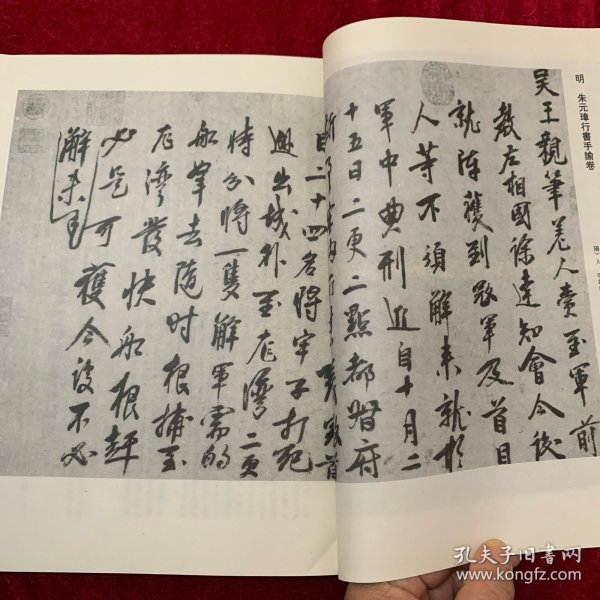 明 朱元璋行書手諭卷
吴王親筆差人賫至軍前
教左相國徐達知會今後
就陣獲到敵軍及首目
人等不須解来就於
軍中典刑近自十月二
十五日二更二點都督府
首
二十四名將牢子打死
逃出城外至龙灣二更
時分將一隻解軍需的
船牽去隨時根捕至
龙灣發快船根趕
必是可獲今後不必
解来至
孔夫子旧书网
www.kongfz.com